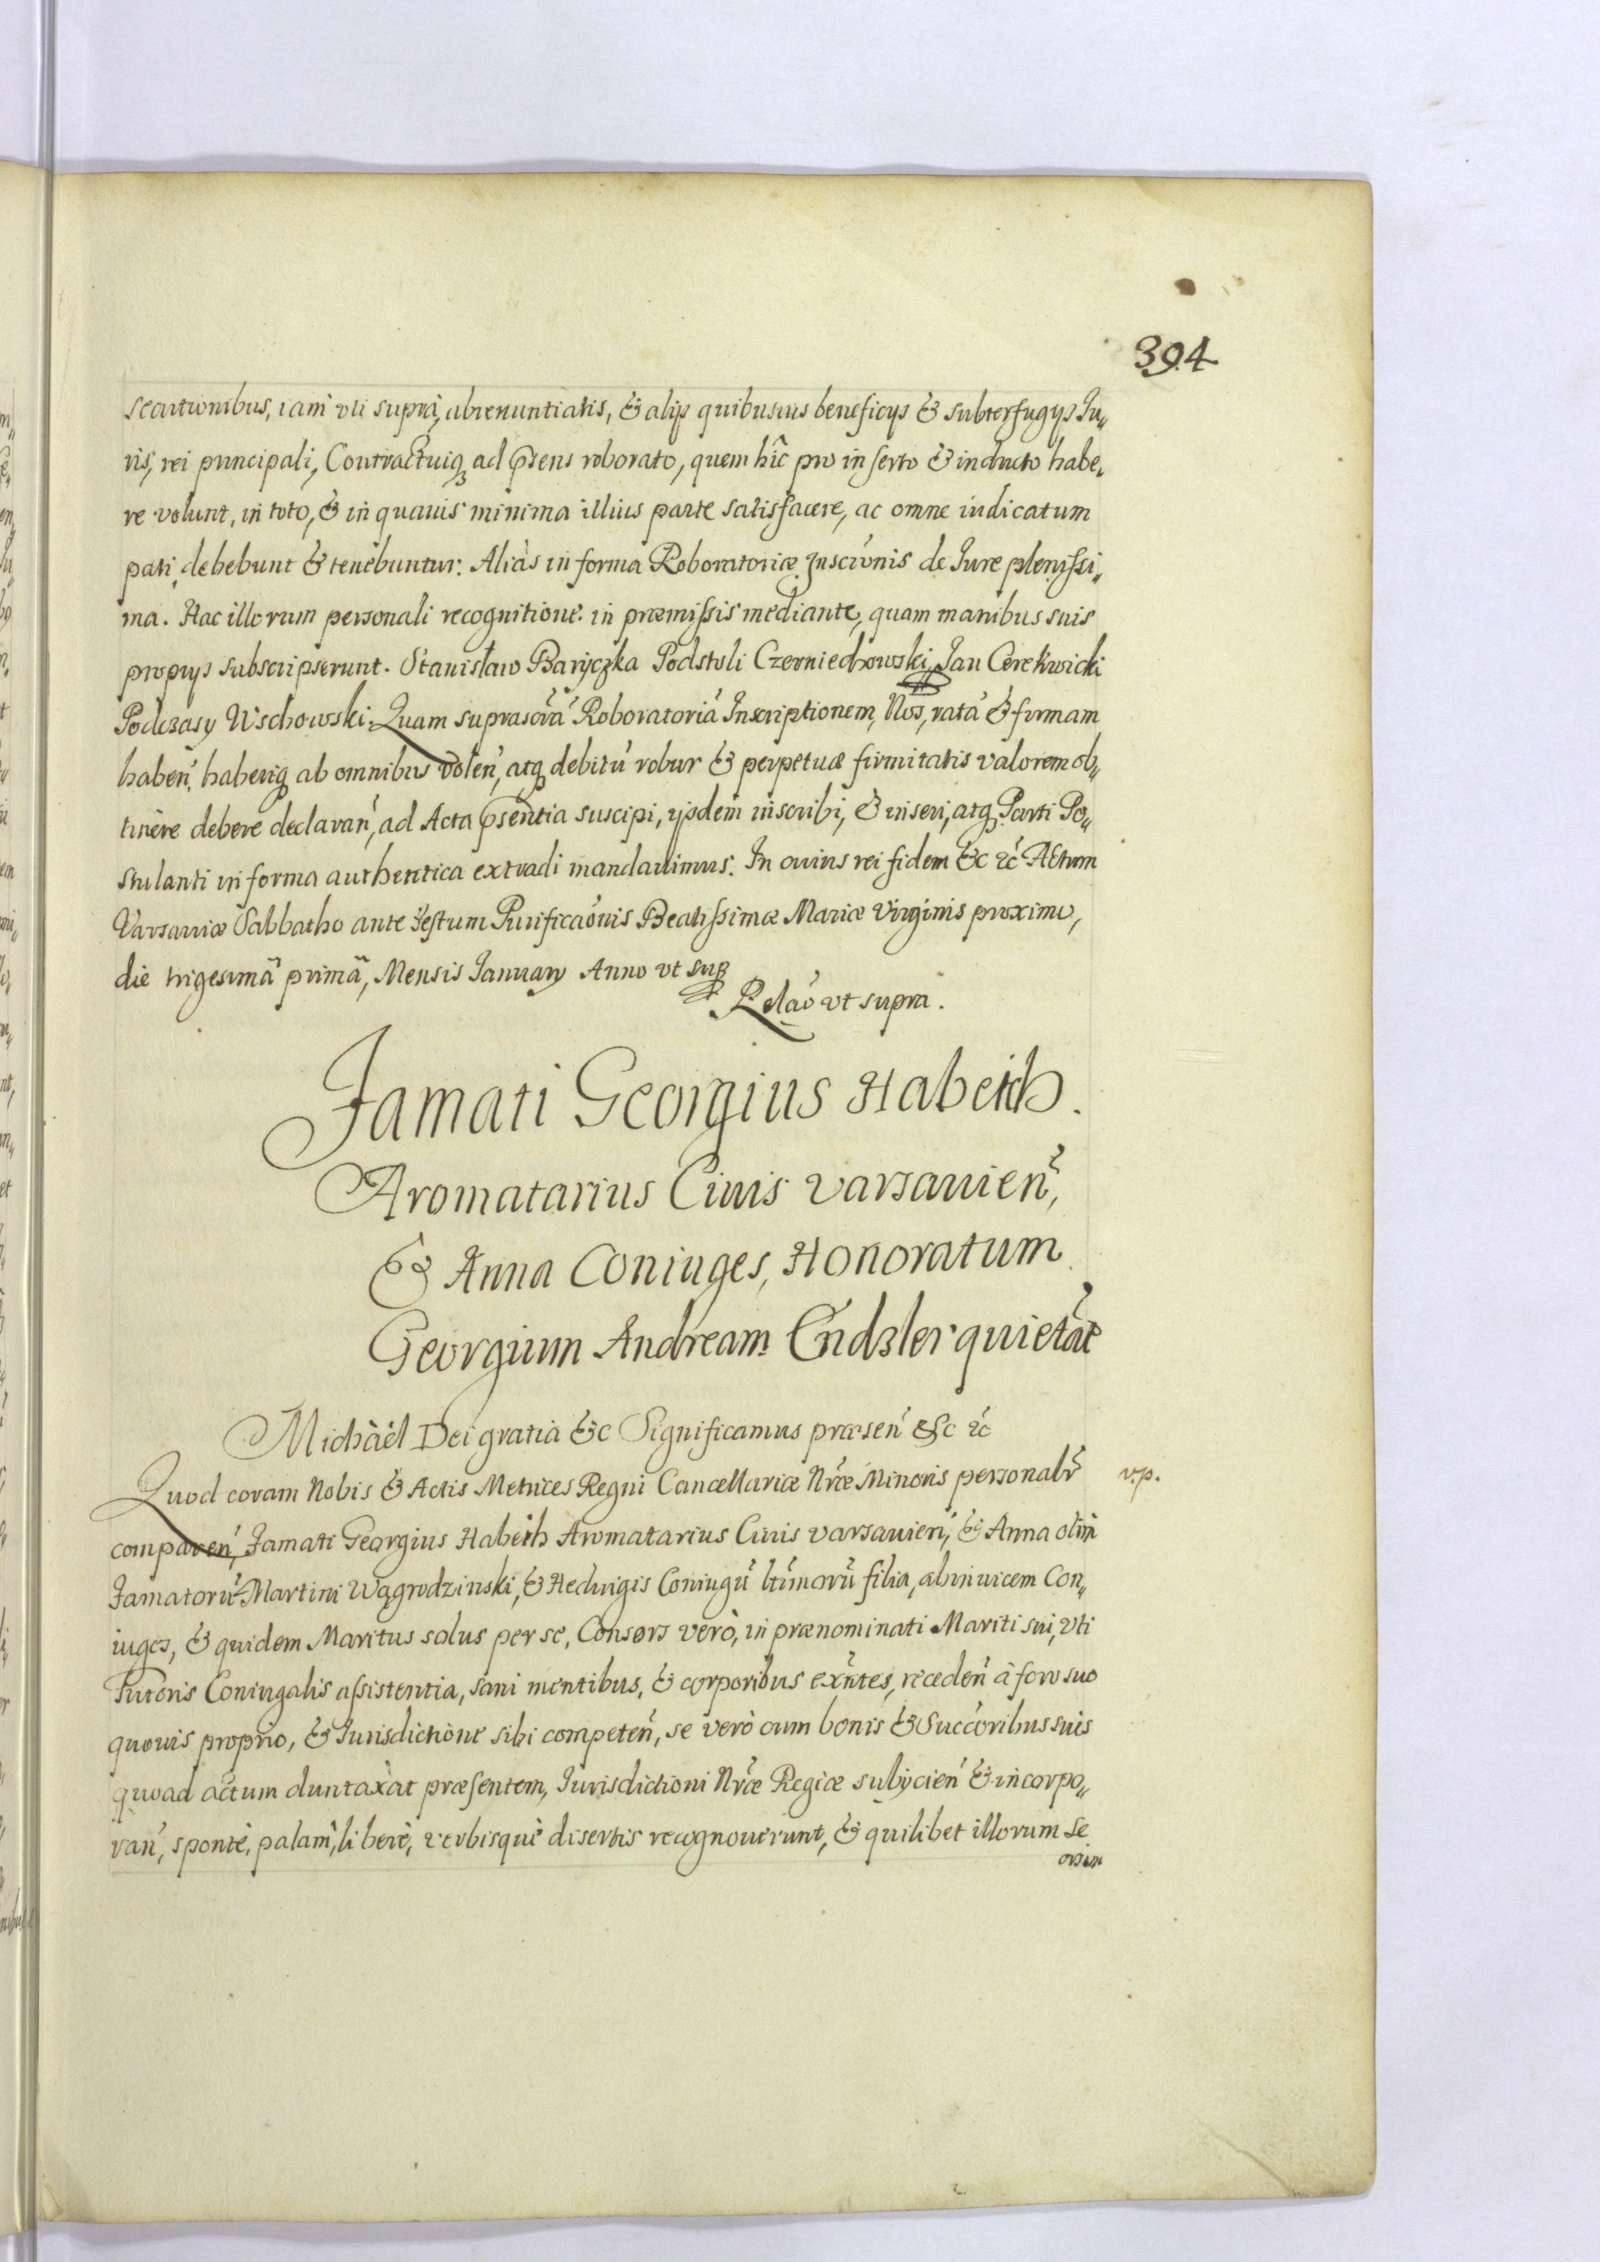 394
secutionibus, iam vti suprà, abrenuntiatis, & alijs quibusuis beneficijs & subterfugijs Ju„
ris, rei principali, Contractuiq ad p̃sens roborato, quem hîc pro inserto & inducto habe„
re volunt, in toto, & in quauis minima illius parte satisfacere, ac omne iudicatum
pati, debebunt & tenebuntur: Aliàs in forma Roboratoriæ Inscrõnis de Jure plenissi„
ma. Hac illorum personali recognitione in præmissis mediante, quam manibus suis
proprijs subscripserunt. Stanisław Baryczka Podstoli Czerniechowski, Jan Cerekwicki
Podczasy Wschowski. Quam suprascr̃ã Roboratoriã Inscriptionem, Nos, ratã & firmam
habeñ, haberiq ab omnibus voleñ, atq debitũ robur & perpetuæ firmitatis valorem ob„
tinere debere declarañ, ad Acta p̃sentia suscipi, ijsdem inscribi, & inseri, atq Parti Po„
stulanti in forma authentica extradi mandauimus. In cuius rei fidem &c ꝛc̃ Actum
Varsauiæ Sabbatho ante Festum Purificaõnis Beatissimæ Mariæ Virginis proximo,
die trigesimâ primâ, Mensis January Anno vt sup
Relaõ vt supra.
Famati Georgius Habeich
Aromatarius Ciuis Varsauieñ,
& Anna Coniuges, Honoratum
Georgium Andream Endzler quietãt
Michàèl Dei gratia &c Significamus præseñ &c ꝛc̃
Quod coram Nobis & Actis Metrices Regni Cancellariæ Nr̃æ Minoris personalr̃
v.p.
compareñ, Famati Georgius Habeich Aromatarius Ciuis Varsauieñ, & Anna olim
Famatorũ Martini Wągrodzinski, & Hedvigis Coniugũ ltĩmorũ filia, abinuicem Con„
iuges, & quidem Maritus solus per se, Consors verò, in prænominati Mariti sui, vti
Tutoris Coniugalis assistentia, sani mentibus, & corporibus exñtes, recedeñ à foro suo
quouis proprio, & Jurisdictione sibi competeñ, se verò cum bonis & Succ̃oribus suis
quoad actum duntaxàt præsentem, Jurisdictioni Nr̃æ Regiæ subijcieñ & incorpo„
rañ, spontè, palam, liberè, verbisquè disertis recognouerunt, & quilibet illorum se
orsim